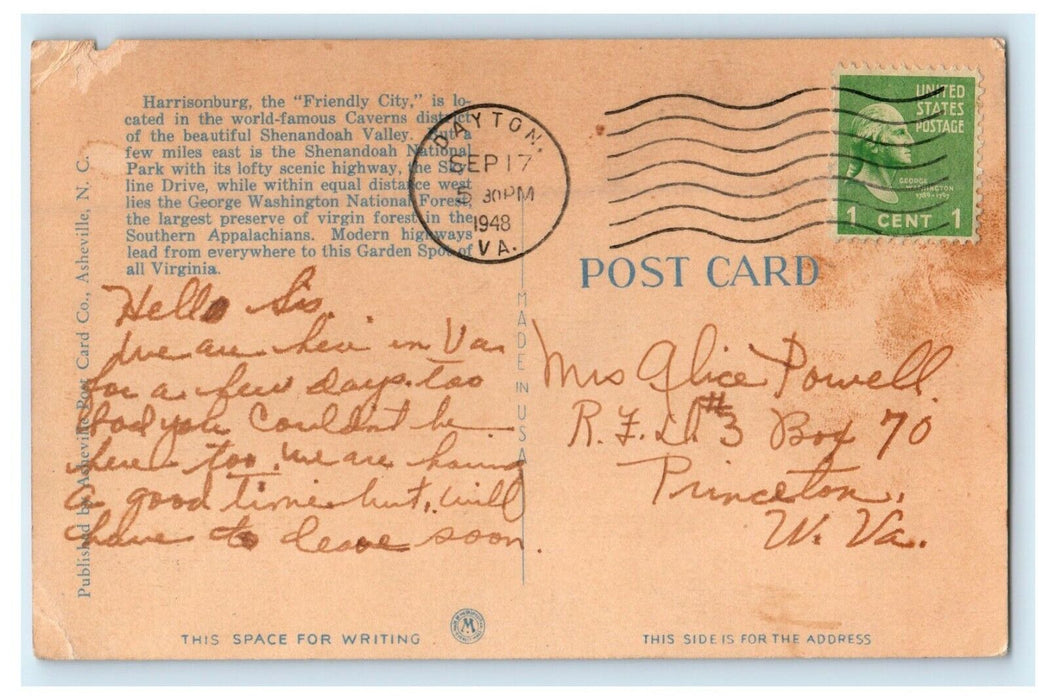 Harrisonburg, the "Friendly City," is lo-
cated in the world-famous Caverns district
of the beautiful Shenandoah Valley. But a
few miles east is the Shenandoah National
Park with its lofty scenic highway, the Sky-
line Drive, while within equal distance west
lies the George Washington National Forest,
the largest preserve of virgin forest in the
Southern Appalachians. Modern highways
lead from everywhere to this Garden Spot of
all Virginia.
Published by Asheville Post Card Co., Asheville, N. C.
Hello Sis.
We are here in Va.
for a few days. too
bad you couldn't be
here too. we are having
a good time but, will
have to leave soon.
THIS SPACE FOR WRITING
MADE IN USA
DAYTON,
SEP 17
5 30 PM
1948
VA.
UNITED
STATES
POSTAGE
GEORGE
WASHINGTON
1789-1797
1 CENT 1
POST CARD
Mrs Alice Powell.
R.F.D. #3 Box 70
Princeton,
W. Va.
THIS SIDE IS FOR THE ADDRESS